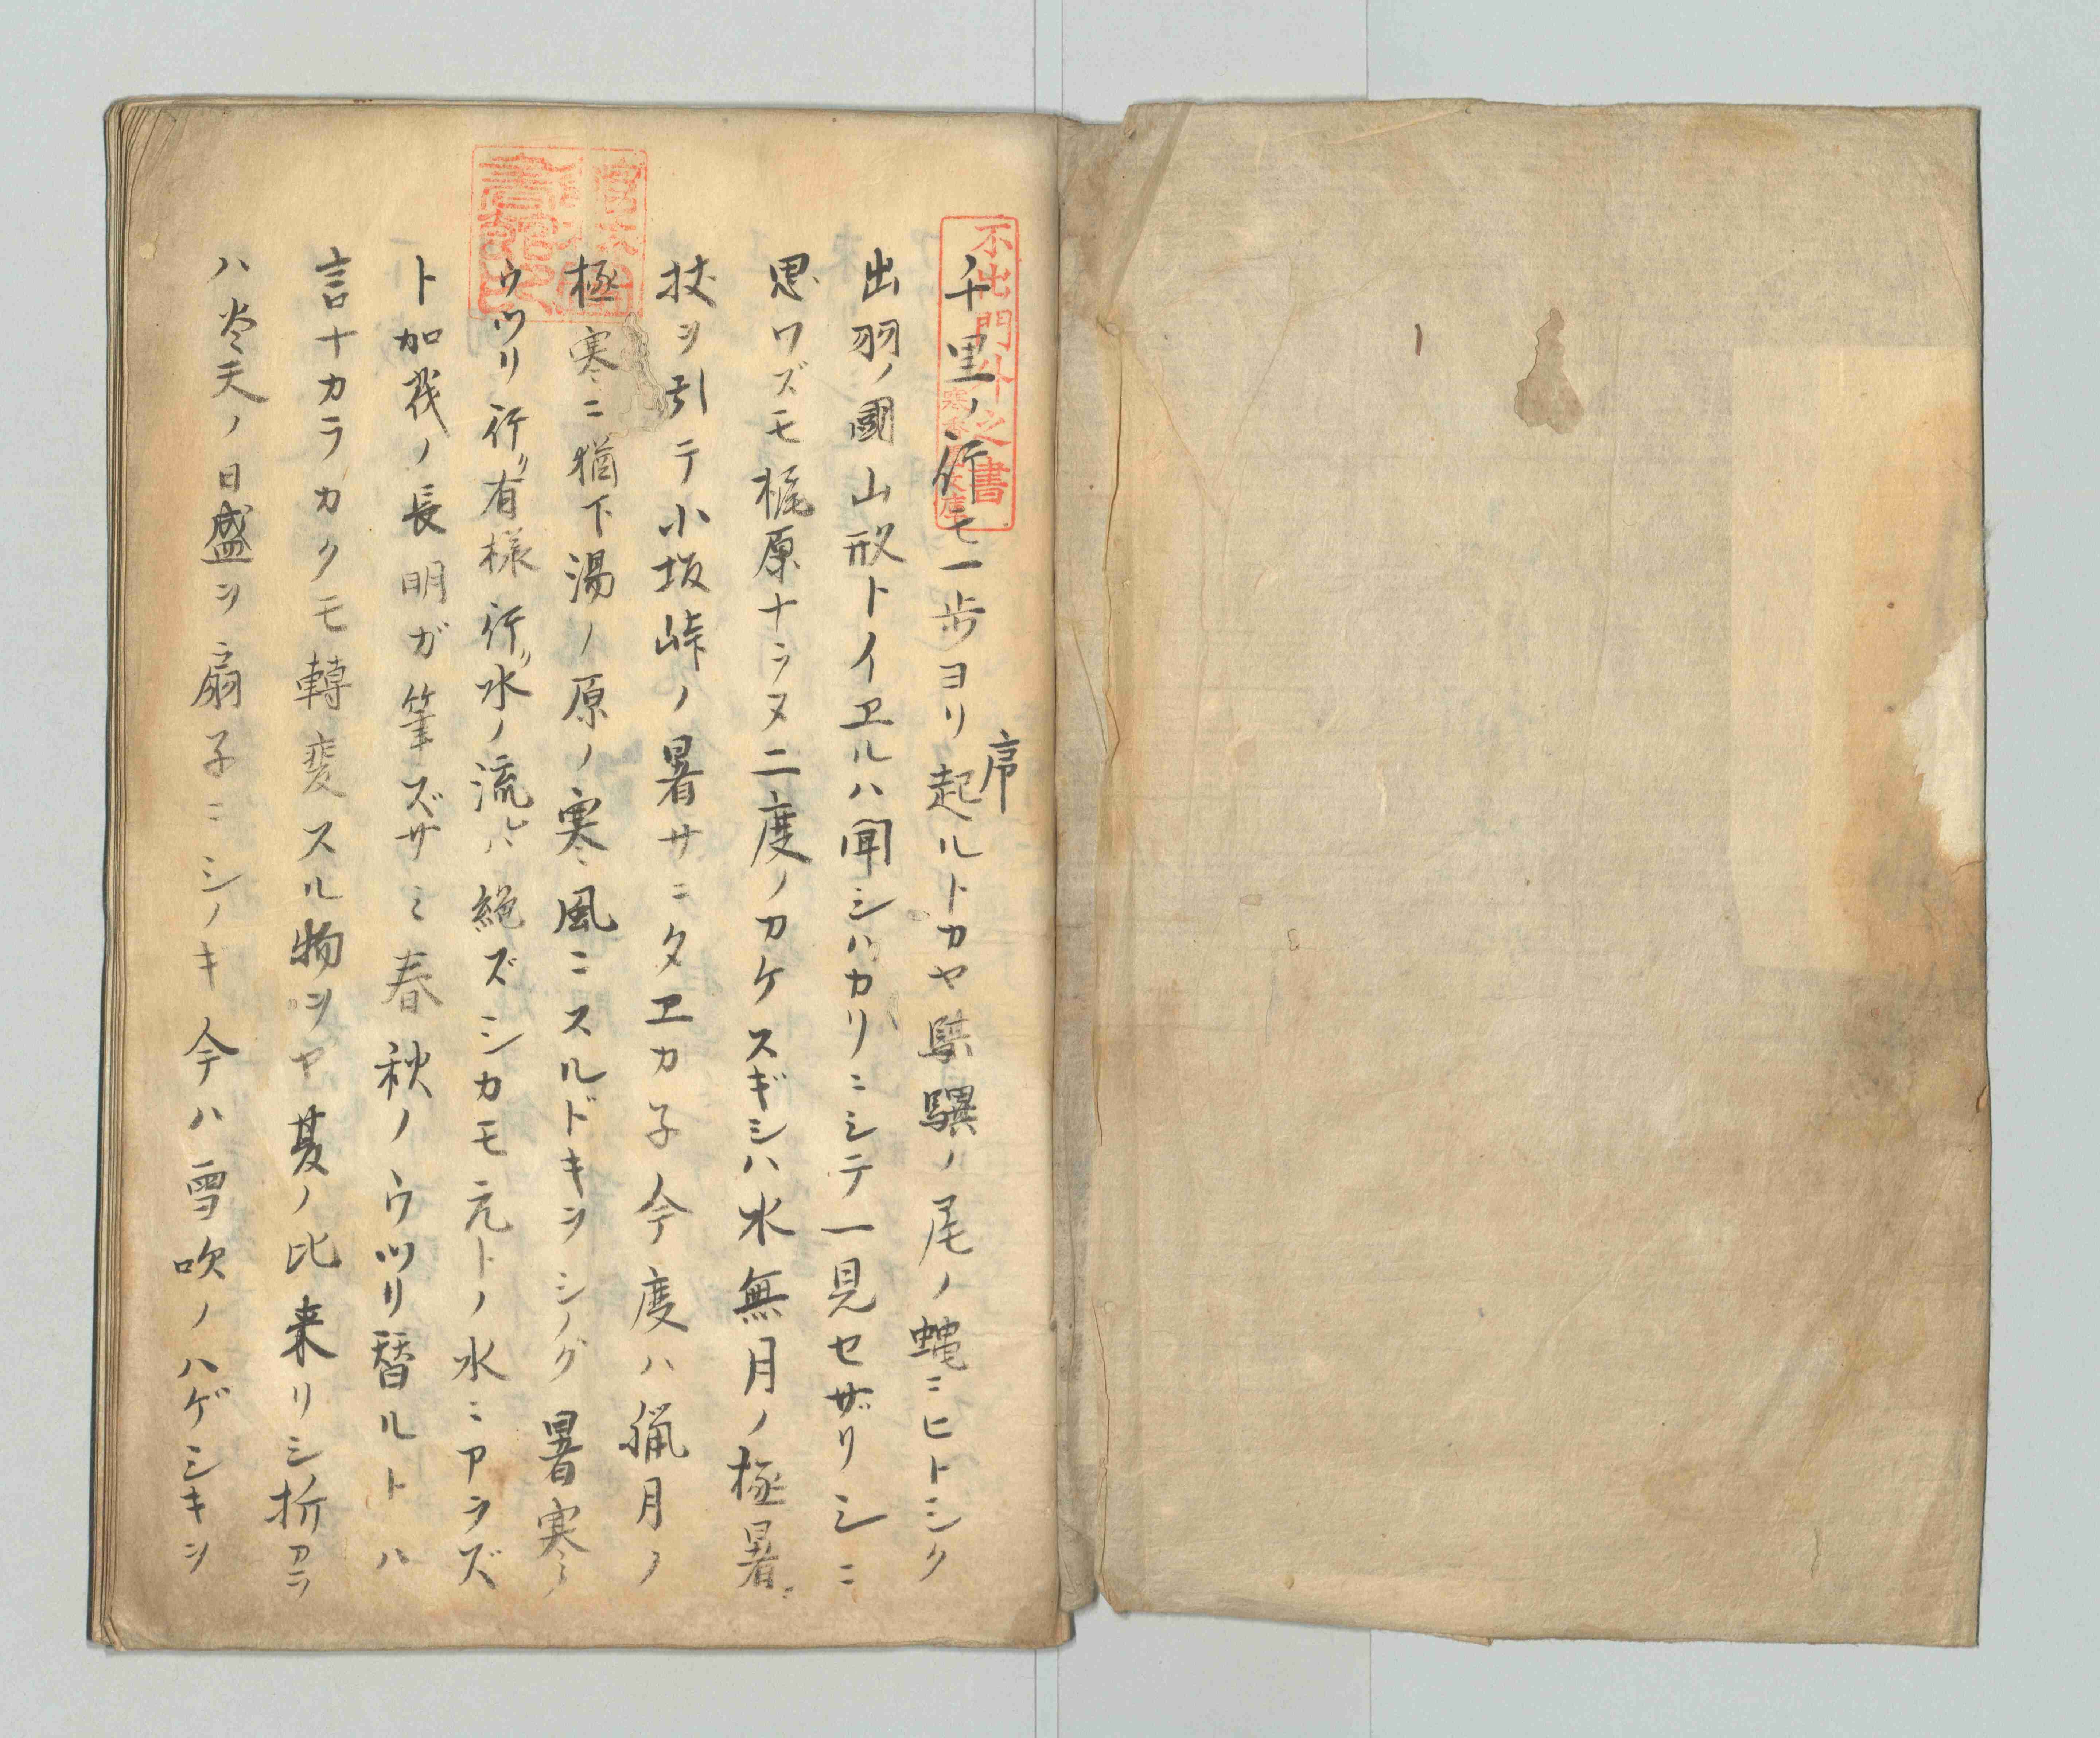 序
千里ノ行モ一歩ヨリ起ルトカヤ騏驥ノ尾ノ蠅ニヒトシク
出羽ノ國山形トイヱルハ聞シハカリニシテ一見セザリシニ
思ワズモ梶原ナラヌ二度ノカケスギシハ水無月ノ極暑ニ
扙ヲ引テ小坂峠ノ暑サニタヱカ子今度ハ臈月ノ
極寒ニ猶下湯ノ原ノ寒風ニスルドキヲシノグ暑寒ノ
ウツリ行ク有様行ク水ノ流レハ絶ズシカモ元トノ水ニアラズ
ト加茂ノ長明ガ筆ズサミ春秋ノウツリ替ルトハ
言ナカラカクモ轉変スル物ヲヤ夏ノ比来リシ折カラ
ハ炎天ノ日盛ヲ扇子ニシノキ今ハ雪吹ノハゲシキヲ
不出門外之書